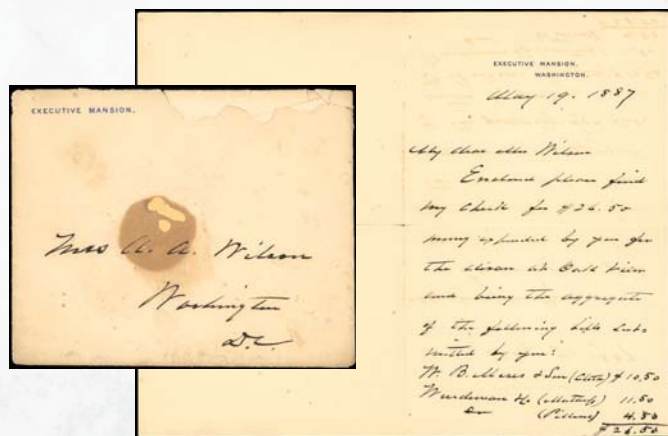 EXECUTIVE MANSION.
Mrs A. A. Wilson
Washington
D.C.
EXECUTIVE MANSION,
WASHINGTON.
May 19. 1887
My dear Mrs Wilson
Enclosed please find
my check for $26.50
money expended by you for
the at Oak View
and being the aggregate
of the following bills sub-
mitted by you:
W. B. Moses & Son $10.50
11.50
4.50
$26.50